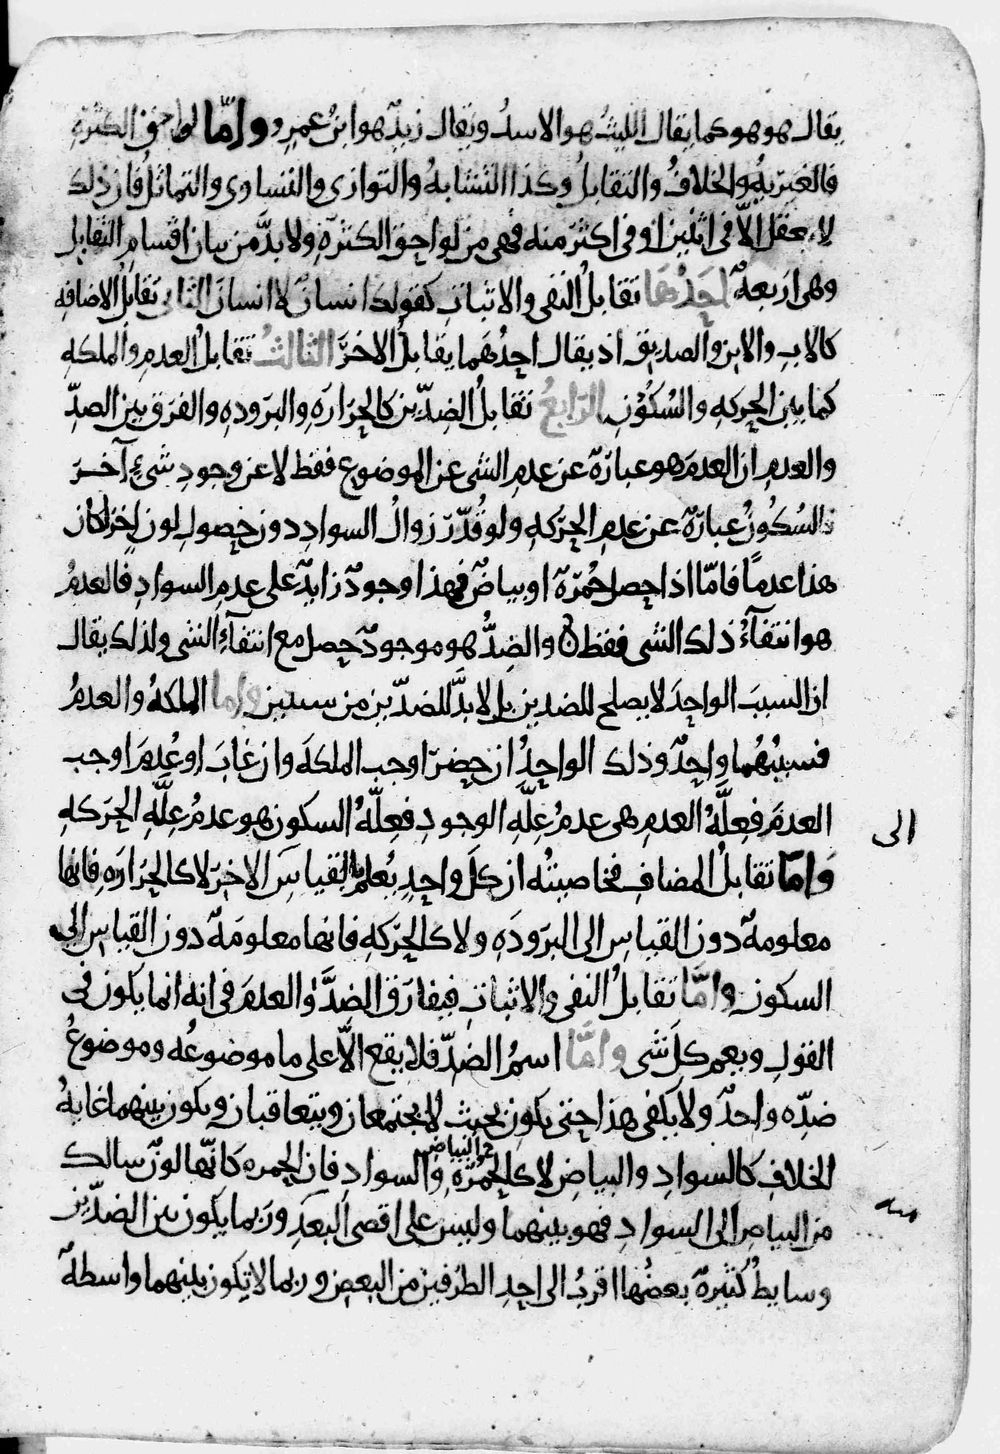 يقال هو هو كما يقال الليث هو الاسد ويقال زيد هو ابن عمرو واما لواحق الكثرة
فالغيرية والخلاف والتقابل وكذا التشابه والتوازي والتساوي والتماثل فان ذلك
لا يعقل الا في اثنين او في اكثر منه فهي من لواحق الكثرة ولا بد من بيان اقسام التقابل
وهي اربعة احدها تقابل النفي والاثبات كقولك انسان لا انسان الثاني تقابل الاضافه
كالاب والابن والصديق اذ يقال احدهما يقابل الاخر الثالث تقابل العدم والملكه
كما بين الحركه والسكون الرابع تقابل الضدين كالحراره والبروده والفرق بين الضد
والعدم ان العدم هو عبارة عن عدم الشي عن الموضوع فقط لا عن وجود شيء آخر
فالسكون عبارة عن عدم الحركه ولو قدر زوال السواد دون حصول لون اخر لكان
هذا عدما فاما اذا حصل حمرة او بياض فهذا وجود زايد على عدم السواد فالعدم
هو انتفاء ذلك الشي فقط والضد هو موجود حصل مع انتفاء الشي ولذلك يقال
ان السبب الواحد لا يصلح للضدين بل لا بد للضدين من سببين واما الملكة والعدم
فسببهما واحد وذلك الواحد ان حضر اوجب الملكة وان غاب او عدم اوجب
العدم فعلة العدم هي عدم علة الوجود فعلة السكون هو عدم علة الحركه
الى
واما تقابل المضاف فخاصيته ان كل واحد يعلم بالقياس الاخر لا كالحراره فانها
معلومة دون القياس الى البروده ولا كالحركه فانها معلومة دون القياس الى
السكون واما تقابل النفي والاثبات فيفارق الضد والعدم في انه انما يكون في
القول ويعم كل شي واما اسم الضد فلا يقع الا على ما موضوعه وموضوع
ضده واحد ولا يكفي هذا حتى يكون بحيث لا يجتمعان ويتعاقبان ويكون بينهما غاية
الخلاف كالسواد والبياض لا كالحمرة والسواد فان الحمره كانها لون سالك
من البياض الى السواد فهو بينهما وليس على اقصى البعد وربما يكون بين الضدين
وسايط كثيرة بعضها اقرب الى احد الطرفين من البعض وربما لا تكون بينهما واسطة